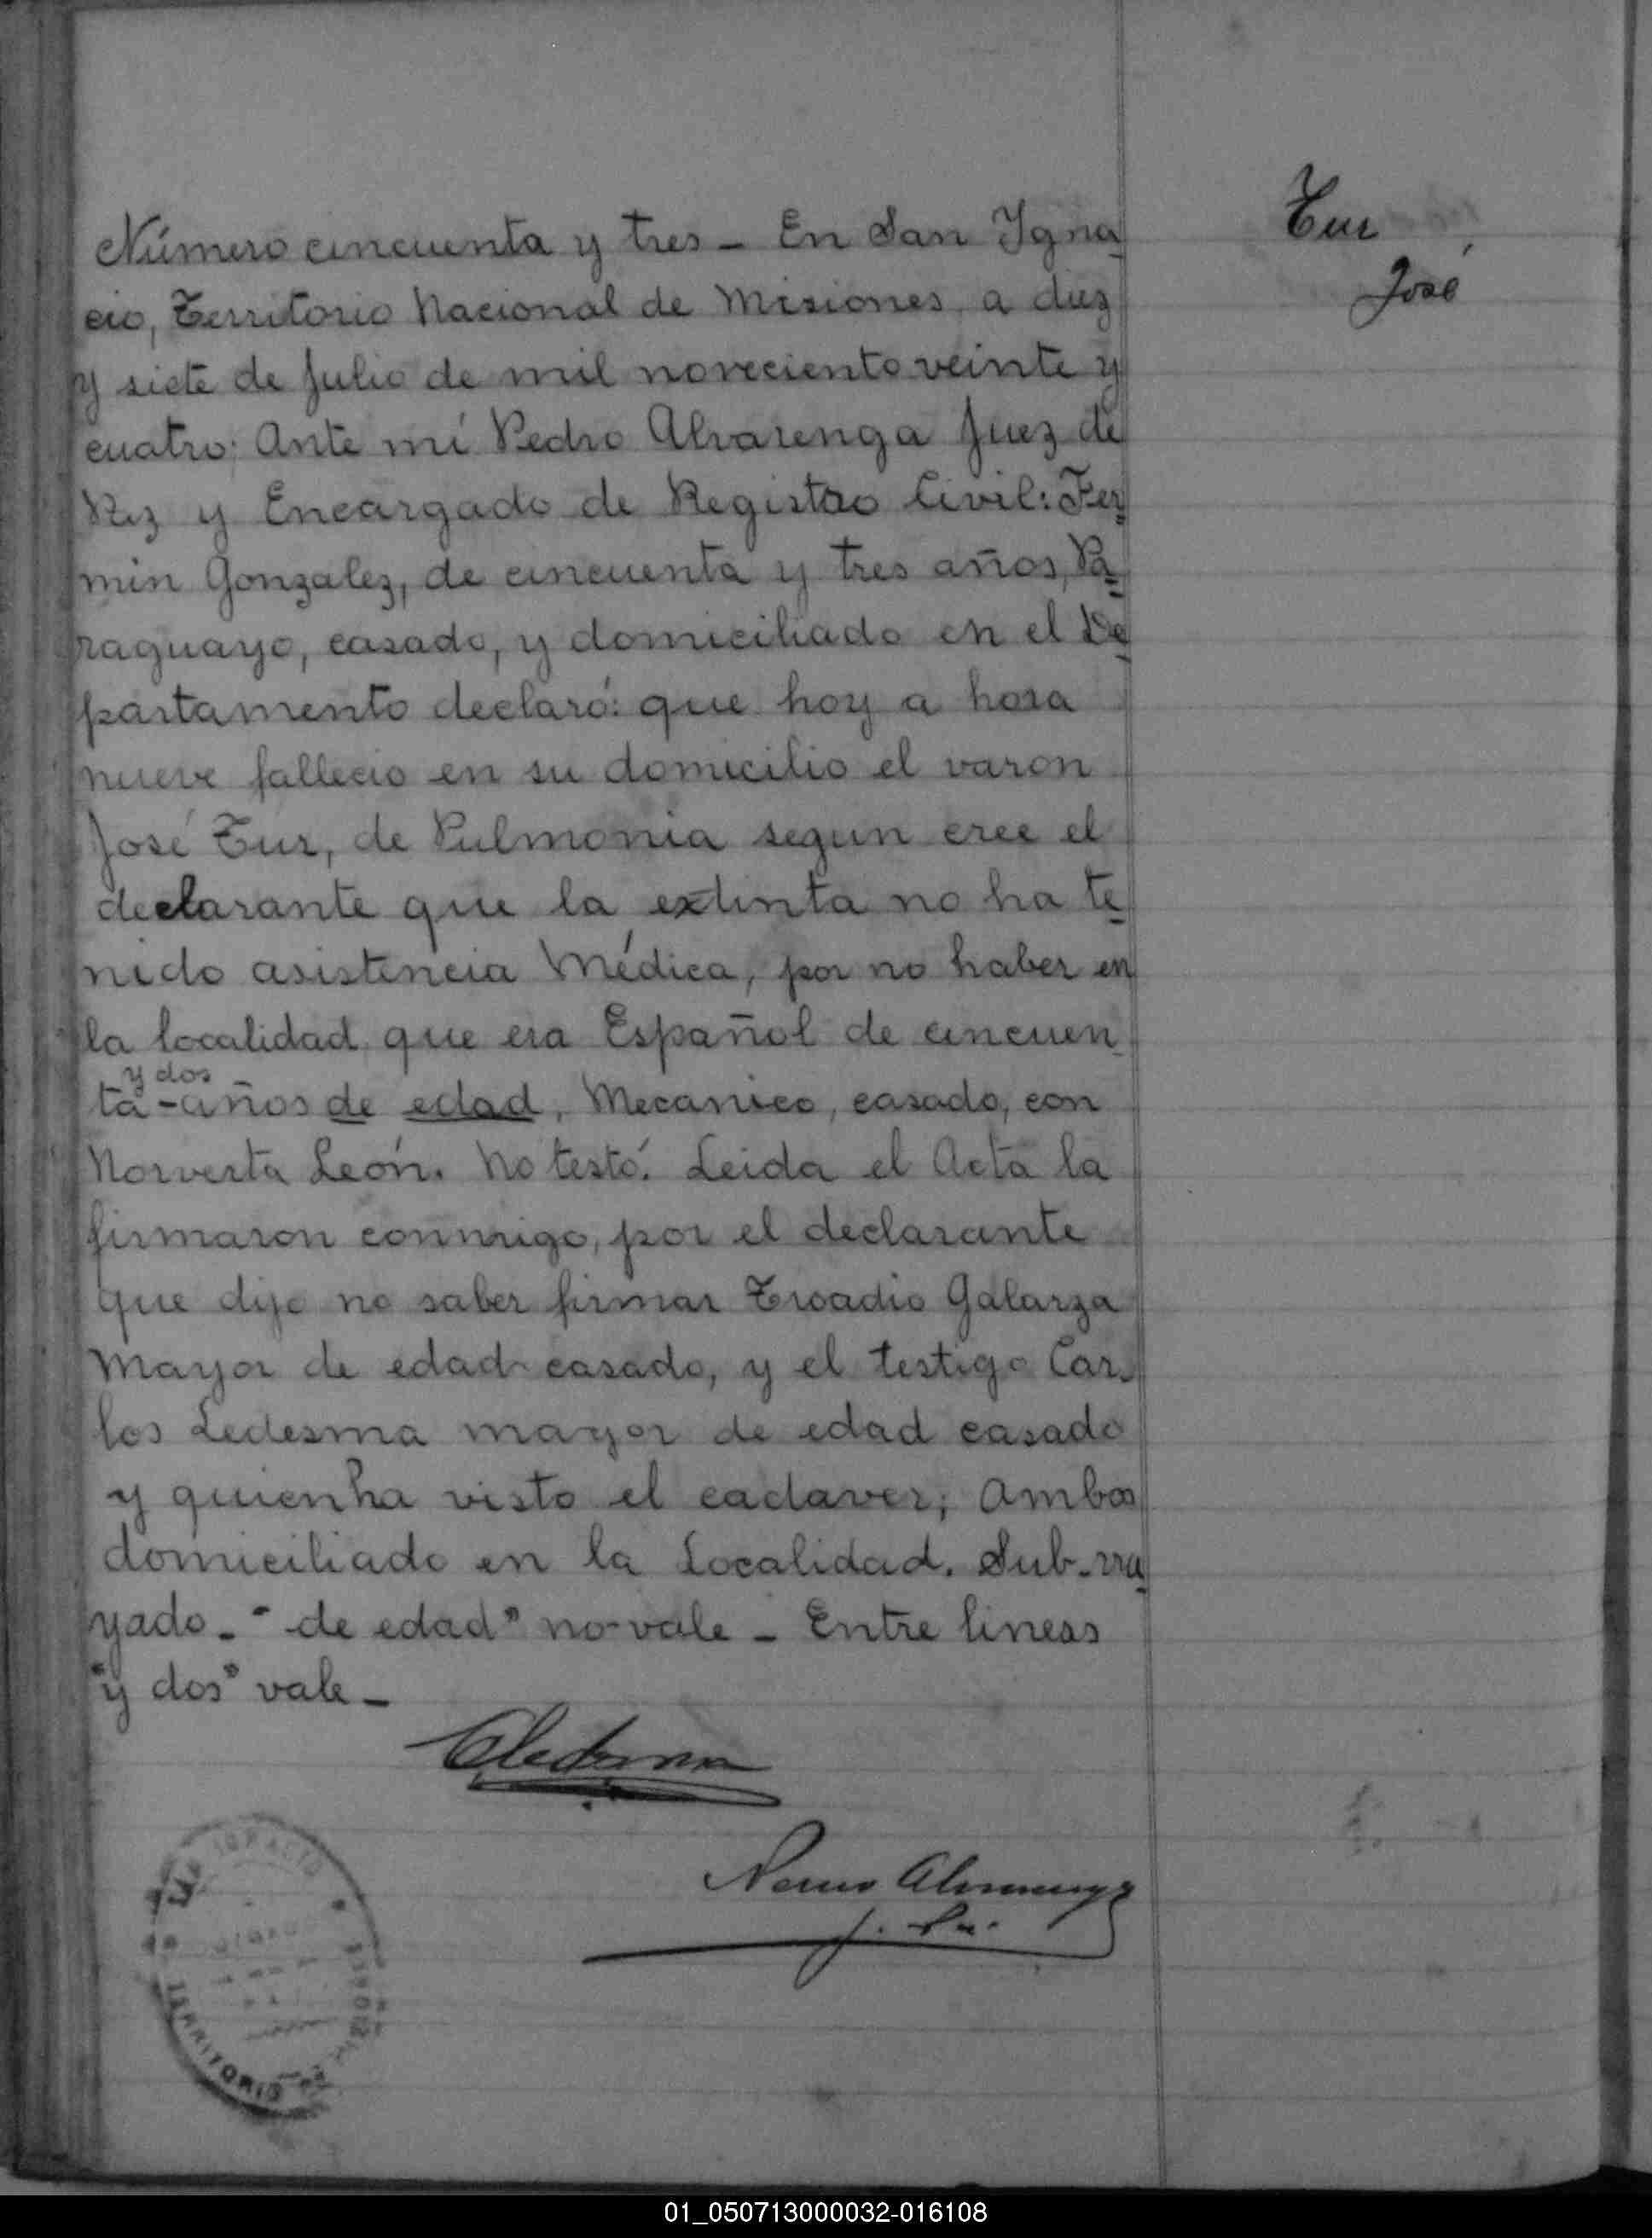 Tur
José
Número cincuenta y tres - En San Igna
cio, Territorio Nacional de Misiones, a diez
y siete de Julio de mil noveciento veinte y
cuatro: Ante mí Pedro Alvarenga Juez de
Paz y Encargado de Registro Civil: Fer
min Gonzalez, de cincuenta y tres años, Pa
raguayo, casado, y domiciliado en el De
partamento declaró: que hoy a hora
nueve fallecio en su domicilio el varon
José Tur, de Pulmonia segun cree el
declarante que la extinta no ha te
nido asistencia Médica, por no haber en
la localidad que era Español de cincuen
y dos
ta - años de edad, Mecanico, casado, con
Norverta León. No testó. Leida el Acta la
firmaron conmigo, por el declarante
que dijo no saber firmar Troadio Galarza
Mayor de edad casado, y el testigo Car
los Ledesma mayor de edad casado
y quien ha visto el cadaver; Ambos
domiciliado en la Localidad. Sub-rra
yado - "de edad" no vale - Entre lineas
"y dos" vale -
CLedesma
Pedro Alvarenga
IGNACIO
TERRITORIO
01_050713000032-016108